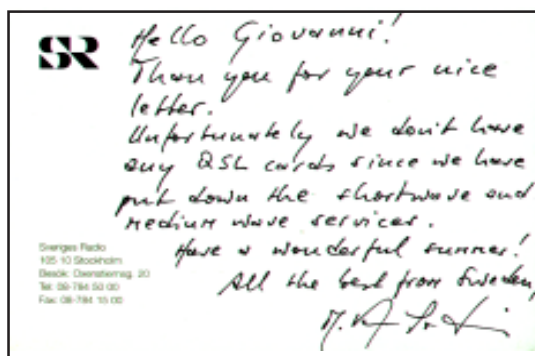 SR
Hello Giovanni!
Thank you for your nice
letter.
Unfortunately we don't have
any QSL cards since we have
put down the shortwave and
medium wave services.
Have a wonderful summer!
All the best from Sweden,
Sveriges Radio
105 10 Stockholm
Besök: Oxenstiernsg. 20
Tel: 08-784 50 00
Fax: 08-784 15 00